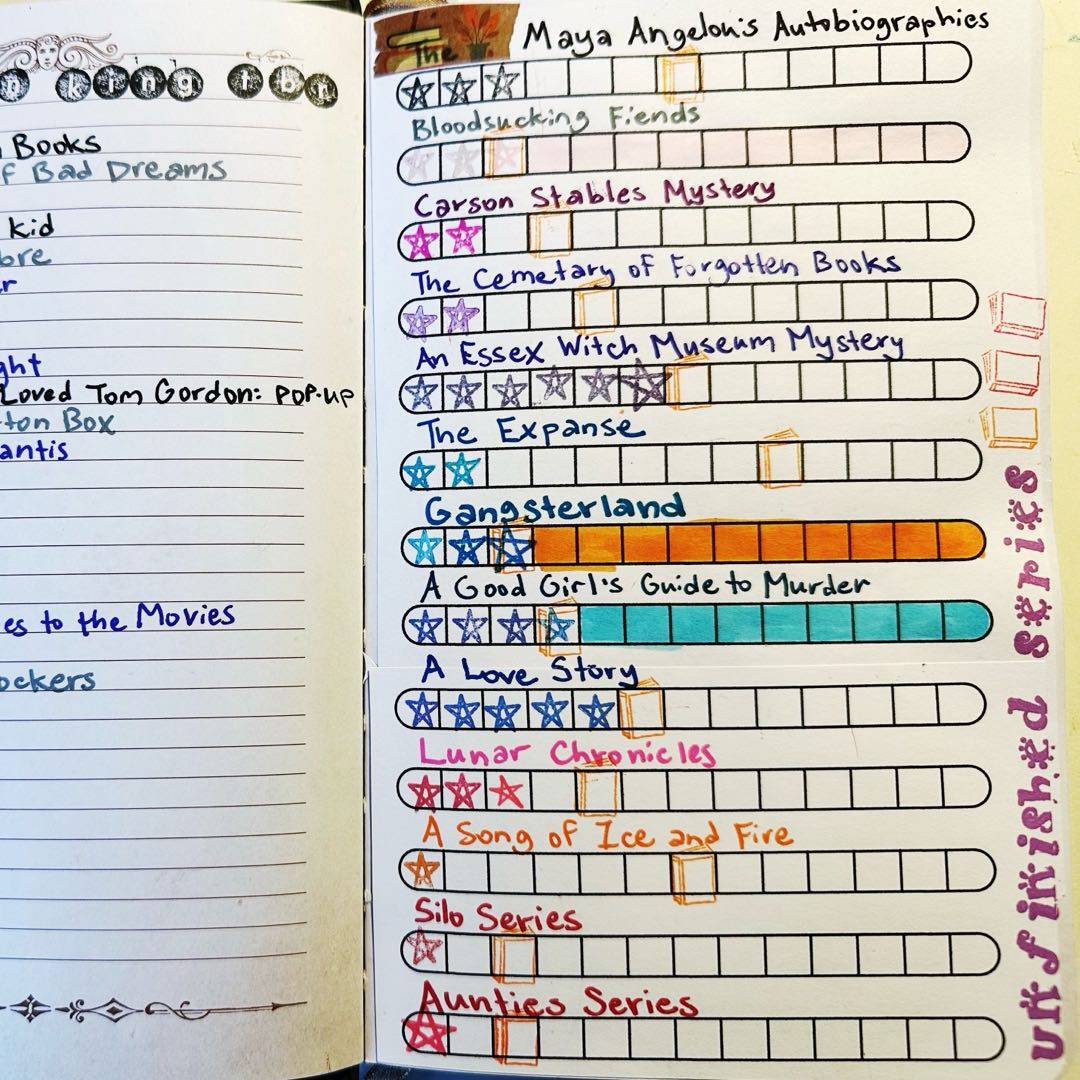 king tbr
Books
f Bad Dreams
kid
bre
r
ght
Loved Tom Gordon: POP-UP
ton Box
antis
es to the Movies
ockers
The
Maya Angelou's Autobiographies
Bloodsucking Fiends
Carson Stables Mystery
The Cemetary of Forgotten Books
An Essex Witch Museum Mystery
The Expanse
Gangsterland
A Good Girl's Guide to Murder
A Love Story
Lunar Chronicles
A Song of Ice and Fire
Silo Series
Aunties Series
unfinished series